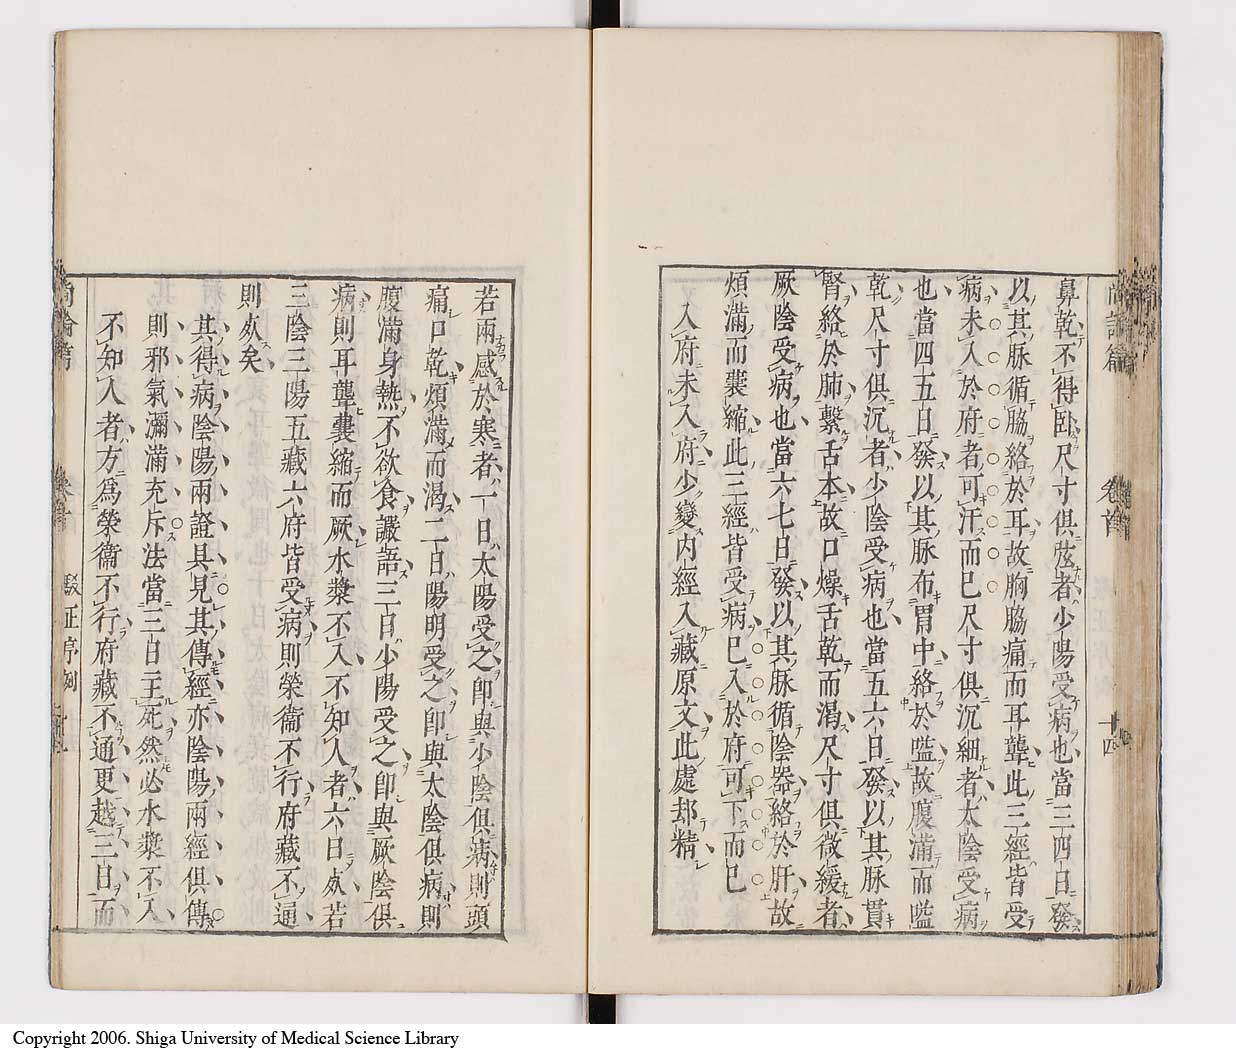 鼻乾不得臥尺寸俱弦者少陽受病也當三四日發
以其脉循脇絡於耳故胸脇痛而耳聾此三經皆受
病未入於府者可汗而已尺寸俱沉細者太陰受病
也當四五日發以其脉布胃中絡於嗌故腹滿而嗌
乾尺寸俱沉者少陰受病也當五六日發以其脉貫
腎絡於肺繫舌本故口燥舌乾而渴尺寸俱微緩者
厥陰受病也當六七日發以其脉循陰器絡於肝故
煩滿而囊縮此三經皆受病已入於府可下而已
入府未入府少變内經入藏原文此處却精
尚論篇 卷首 十四
若兩感於寒者一日太陽受之即與少陰俱病則頭
痛口乾煩滿而渴二日陽明受之即與太陰俱病則
腹滿身熱不欲食讝語三日少陽受之即與厥陰俱
病則耳聾囊縮而厥水漿不入不知人者六日死若
三陰三陽五藏六府皆受病則榮衞不行府藏不通
則死矣
其得病陰陽兩證具見其傳經亦陰陽兩經俱傳
則邪氣瀰滿充斥法當三日主死然必水漿不入
不知人者方爲榮衞不行府藏不通更越三日而
尚論篇 駁正序例
Copyright 2006. Shiga University of Medical Science Library